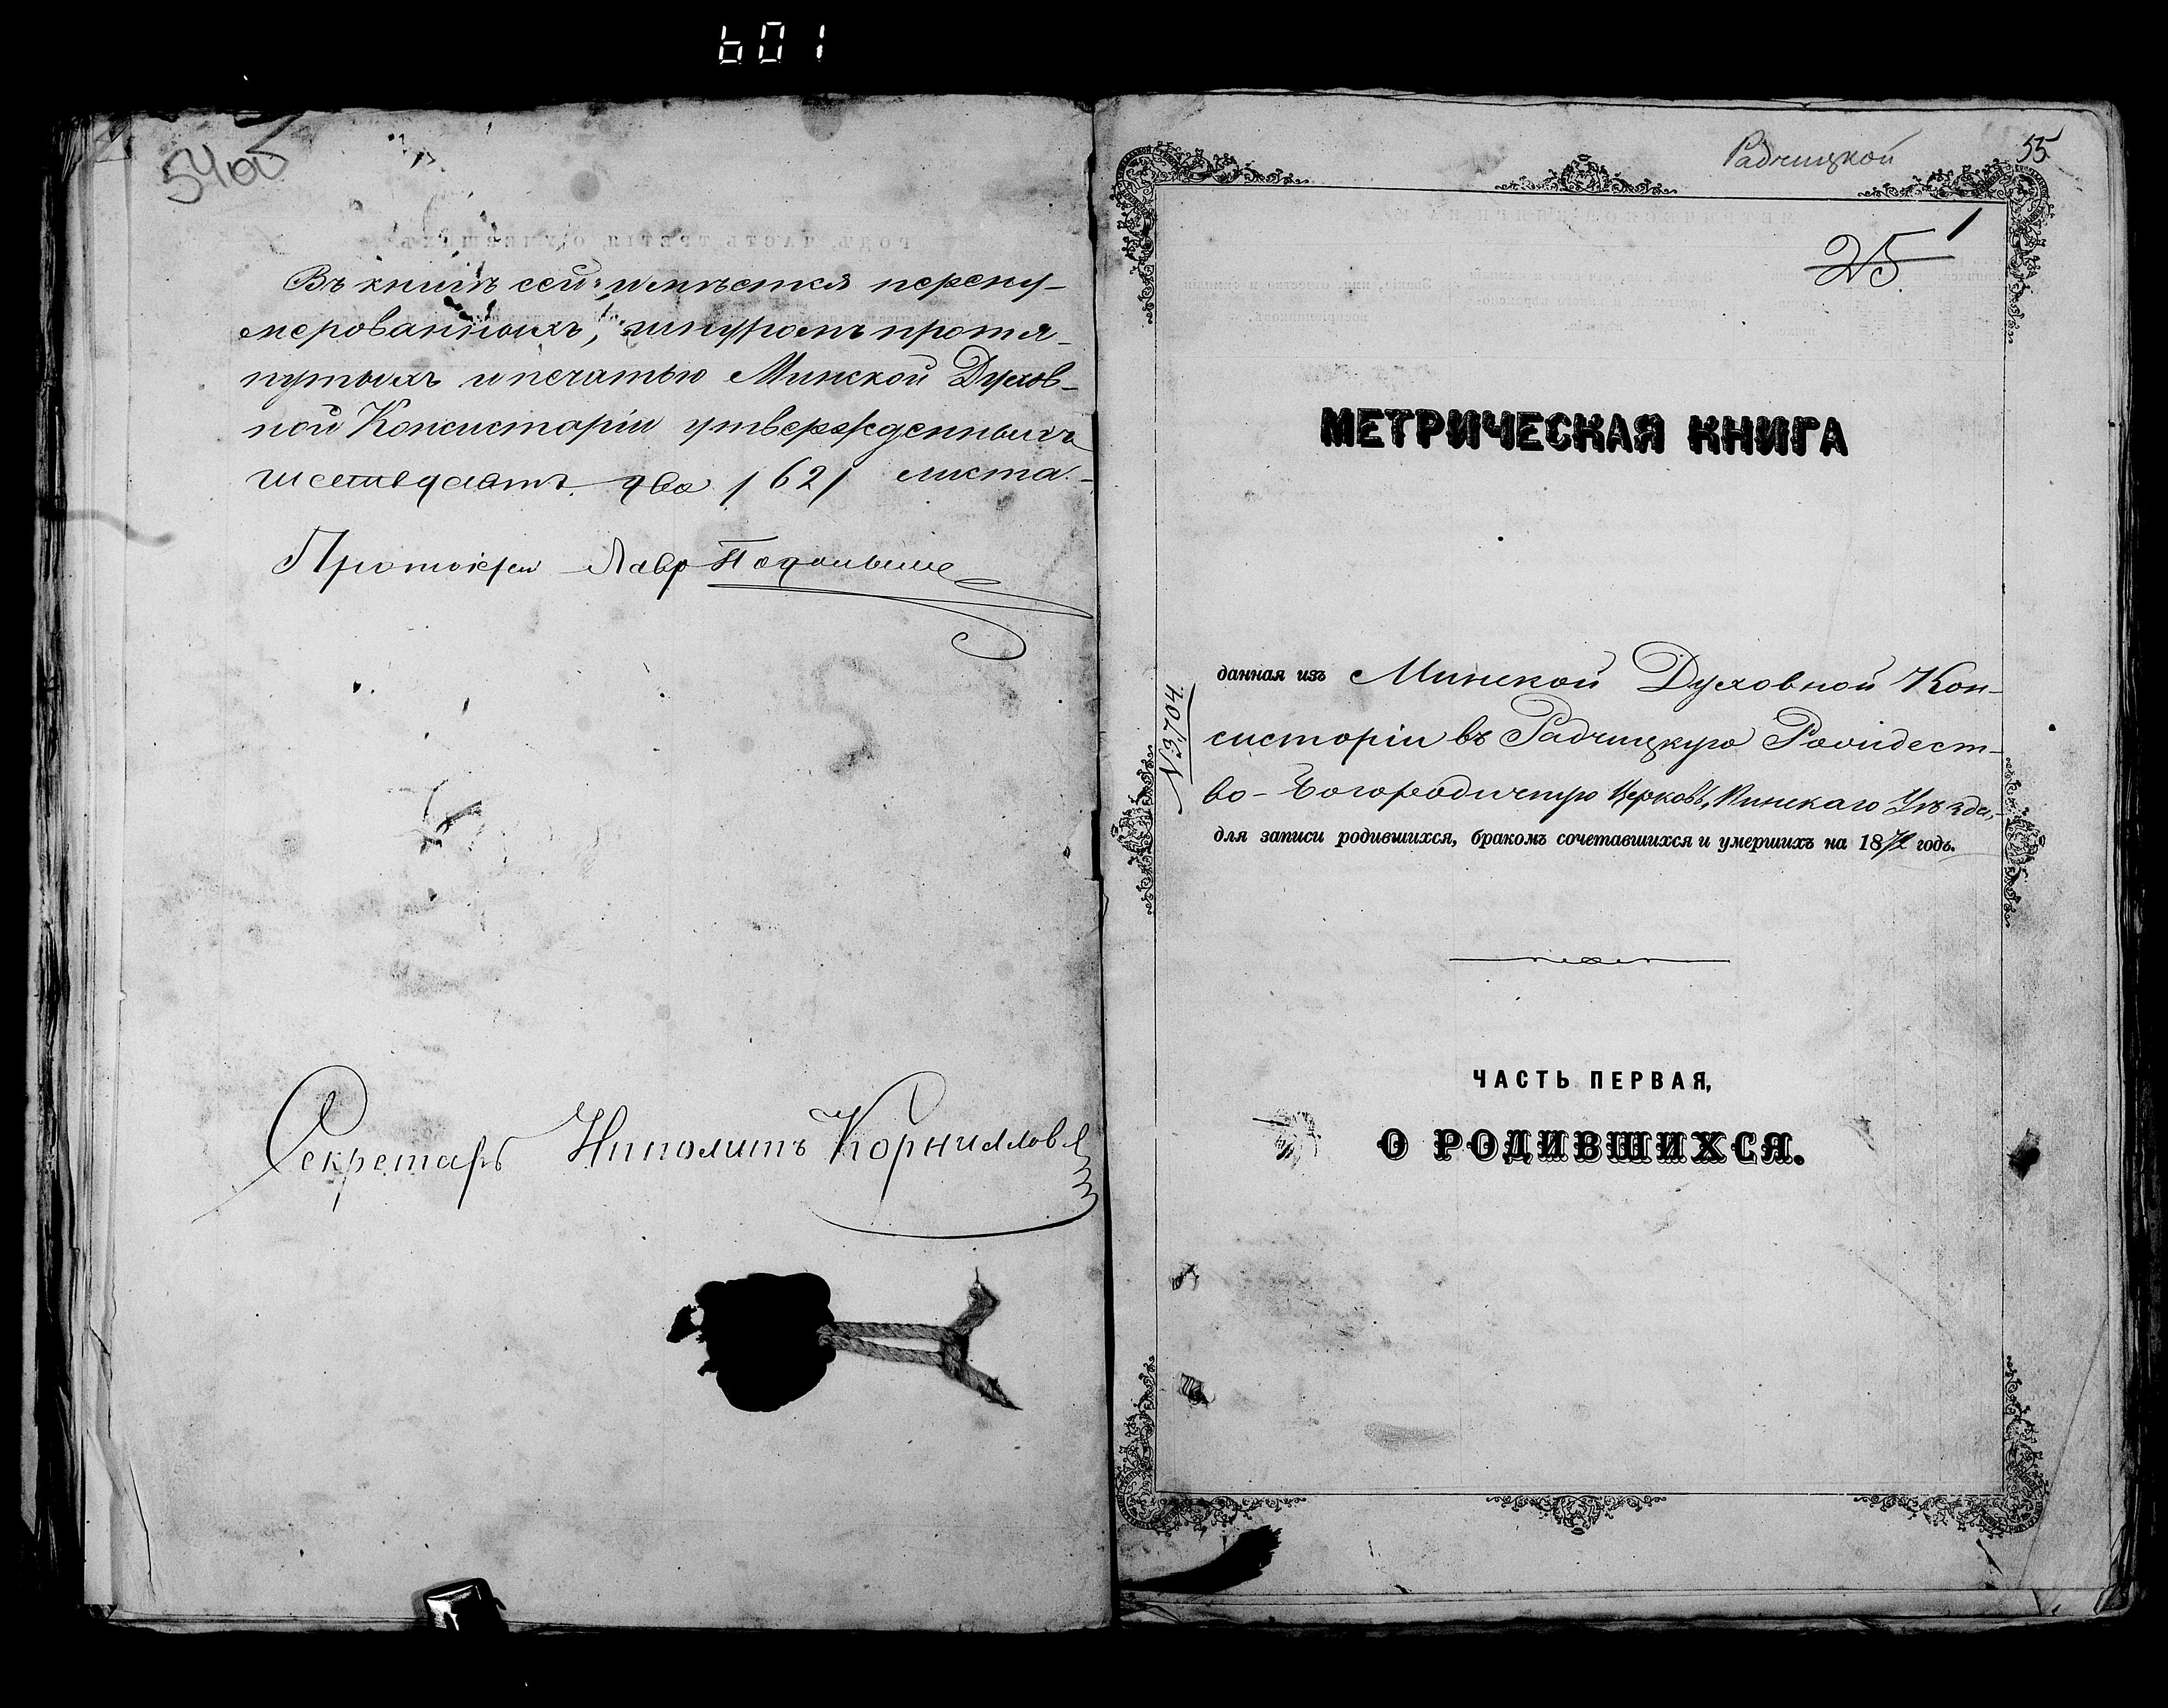 601
5400
Въ книгѣ сей имѣется перену-
мерованныхъ, шнуромъ протя-
нутыхъ и печатью Минской Духов-
ной Консисторіи утвержденныхъ
шестьдесятъ два /62/ листа.
Протоіерей Лавръ
Секретарь Ипполитъ Корниловъ
Радчицкой
55
1
25
МЕТРИЧЕСКАЯ КНИГА
N 3,704.
данная изъ Минской Духовной Кон-
систоріи въ Радчицкую Рождест-
во-Богородичную Церковь, Пинскаго Уѣзда,
для записи родившихся, бракомъ сочетавшихся и умершихъ на 18 годъ.
ЧАСТЬ ПЕРВАЯ,
О РОДИВШИХСЯ.